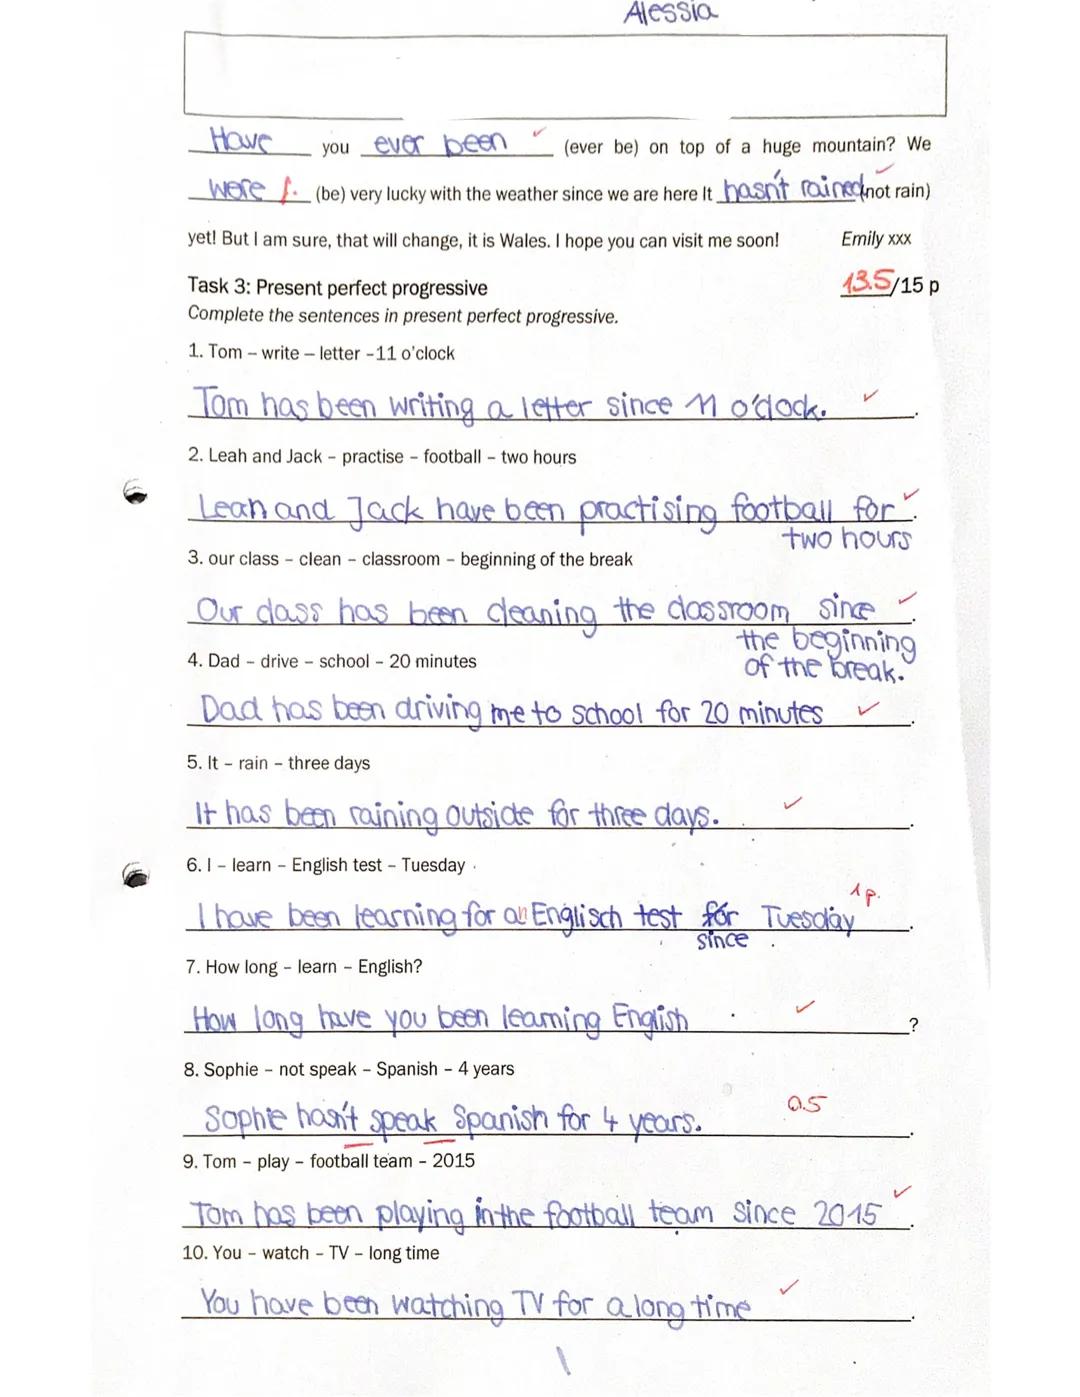 Alessia
Have you ever been (ever be) on top of a huge mountain? We
were f. (be) very lucky with the weather since we are here It hasn't rained (not rain)
yet! But I am sure, that will change, it is Wales. I hope you can visit me soon! Emily xxx
Task 3: Present perfect progressive 13.5/15 p
Complete the sentences in present perfect progressive.
1. Tom – write – letter -11 o'clock
Tom has been writing a letter since 11 o'clock.
2. Leah and Jack – practise – football – two hours
Leah and Jack have been practising football for
two hours
3. our class – clean – classroom – beginning of the break
Our class has been cleaning the classroom since
the beginning
of the break.
4. Dad – drive – school – 20 minutes
Dad has been driving me to school for 20 minutes
5. It – rain – three days
It has been raining outside for three days.
6. I – learn – English test – Tuesday
1 p.
I have been learning for an Englisch test for Tuesday
since
7. How long – learn – English?
How long have you been learning English ?
8. Sophie – not speak – Spanish – 4 years
0.5
Sophie hasn't speak Spanish for 4 years.
9. Tom – play – football team – 2015
Tom has been playing in the football team since 2015
10. You – watch – TV – long time
You have been watching TV for a long time